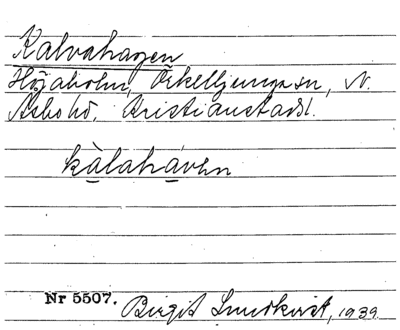 Kalvahagen
Höjaholm, Örkelljunga sn, N.
Åsbo hd, Kristianstads l.
kàlahávħn
Nr 5507. Birgit Lundkvist, 1939.